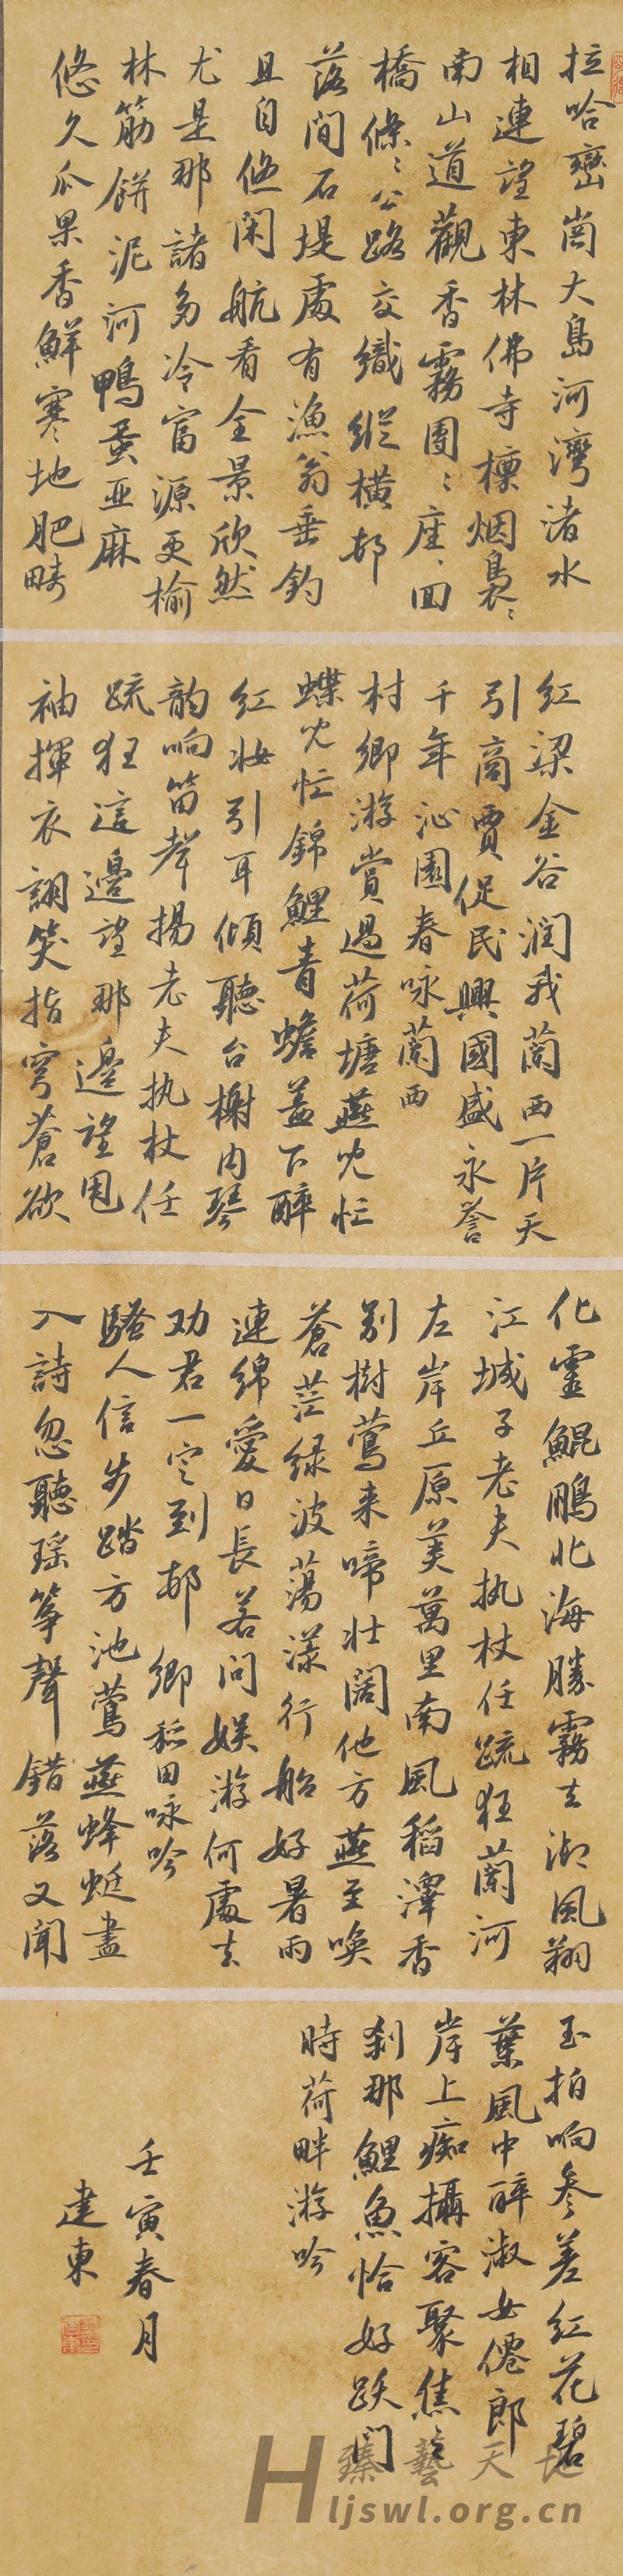 拉哈巒崗大島河灣渚水
相連望東林佛寺檀烟裊〻
南山道觀香霧團〻座〻回
橋條〻公路交織縱橫邨
落間石堤處有漁翁垂釣
且自悠閑航看全景欣然
尤是那諸多冷富源更榆
林筋餅泥河鴨蛋亚麻
悠久瓜果香鮮寒地肥疇
红梁金谷润我蘭西一片天
引商賈促民興國盛永譽
千年沁園春咏蘭西
村鄉游賞過荷塘燕兒忙
蝶兒忙錦鯉青蟾蓋下醉
红妆引耳傾聽台榭内琴
韵响笛聲揚老夫执杖任
疏狂這邊望那邊望甩
袖揮衣詡笑指穹蒼欲
化靈鯤鵬北海勝霧去湖風翔
江城子老夫执杖任疏狂蘭河
左岸丘原美萬里南風稻澤香
别樹鶯来啼壮闊他方燕至喚
蒼茫绿波蕩漾行船好暑雨
連绵愛日長若问娱游何處去
劝君一定到邨鄉稻田咏吟
騷人信步踏方池鶯燕蜂蜓盡
入詩忽聽瑶筝聲錯落又聞
玉拍响参差红花碧
葉風中醉淑女僊郎
岸上痴攝客聚焦〻
刹那鯉魚恰好跃门
時荷畔游吟
壬寅春月
建東
臻藝天
Hljswl.org.cn